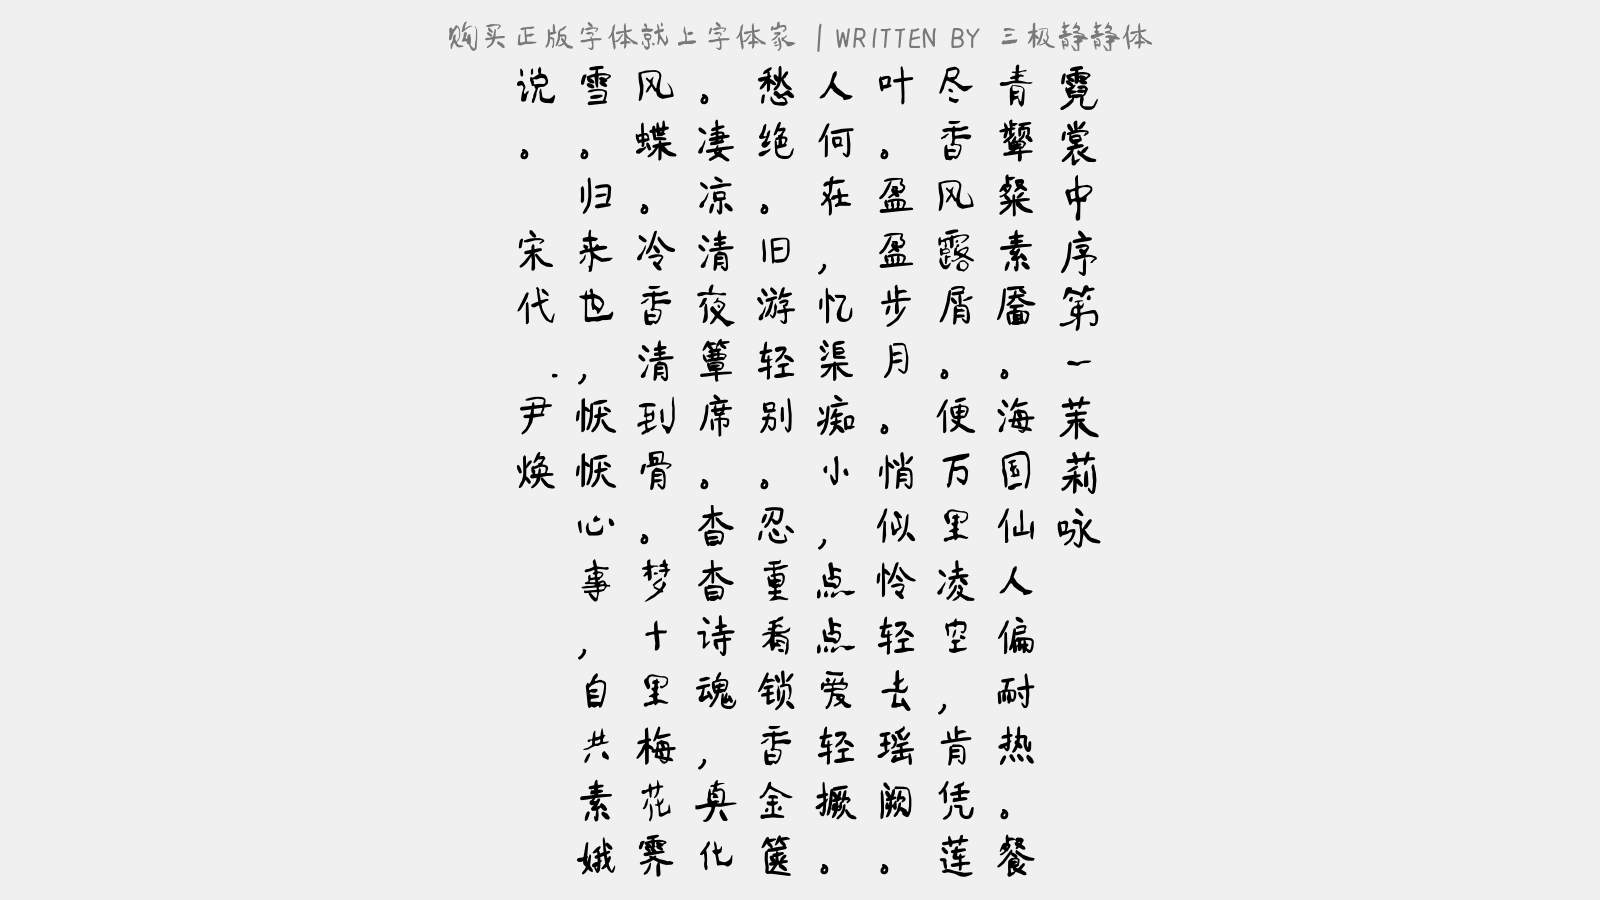 购买正版字体就上字体家 | WRITTEN BY 三极静静体
霓裳中序第一茉莉咏
青颦粲素靥。海国仙人偏耐热。餐
尽香风露屑。便万里凌空，肯凭莲
叶。盈盈步月。悄似怜轻去瑶阙。
人何在，忆渠痴小，点点爱轻撅。
愁绝。旧游轻别。忍重看锁香金箧
。凄凉清夜簟席。杳杳诗魂，真化
风蝶。冷香清到骨。梦十里梅花霁
雪。归来也，恹恹心事，自共素娥
说。 宋代.尹焕